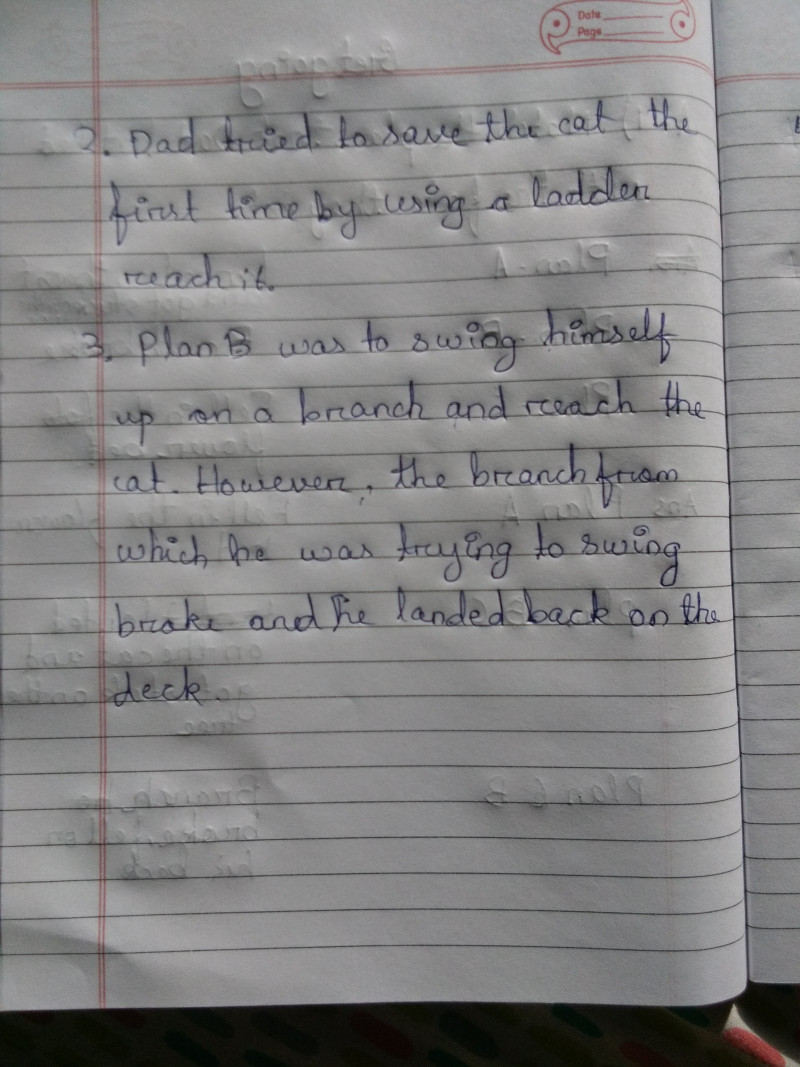 Date
Page
2. Dad tried to save the cat, the
first time by using a ladder
reach it.
3. Plan B was to swing himself
up on a branch and reach the
cat. However, the branch from
which he was trying to swing
brake and he landed back on the
deck.